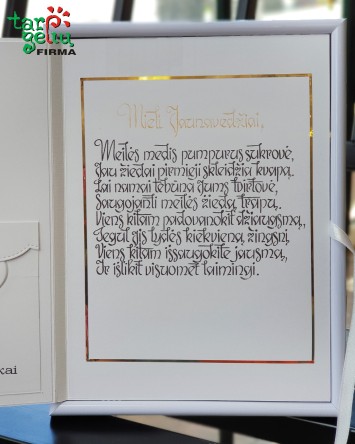 tarp gėlių
FIRMA
Mieli Jaunavedžiai,
Meilės medis pumpurus sukrovė,
Jau žiedai pirmieji skleidžia kvapą.
Lai namai tebūna Jums tvirtovė,
Saugojanti meilės žiedą trapų.
Viens kitam padovanokit džiaugsmą,
Tegul jis lydės kiekvieną žingsnį,
Viens kitam išsaugokite jausmą,
Ir išlikit visuomet laimingi.
kai